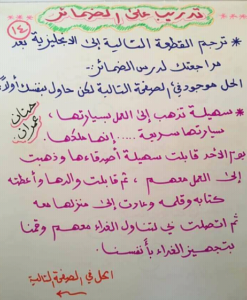 تدريب على الضمائر
١٤
* ترجم القطعة التالية إلى الانجليزية بعد
مراجعتك لدرس الضمائر.
الحل موجود في الصفحة التالية لكن حاول بنفسك أولاً
حنان
عمران
* سهيلة تذهب إلى العمل بسيارتها،
سيارتها سريعة .... إنها ملكها.
يوم الأحد قابلت سهيلة أصدقاءها وذهبت
إلى العمل معهم، ثم قابلت والدها وأعطته
كتابه وقلمه وعادت إلى منزلها معه
ثم اتصلت بي لتناول الغداء معهم وقمنا
بتجهيز الغداء بأنفسنا.
الحل في الصفحة التالية